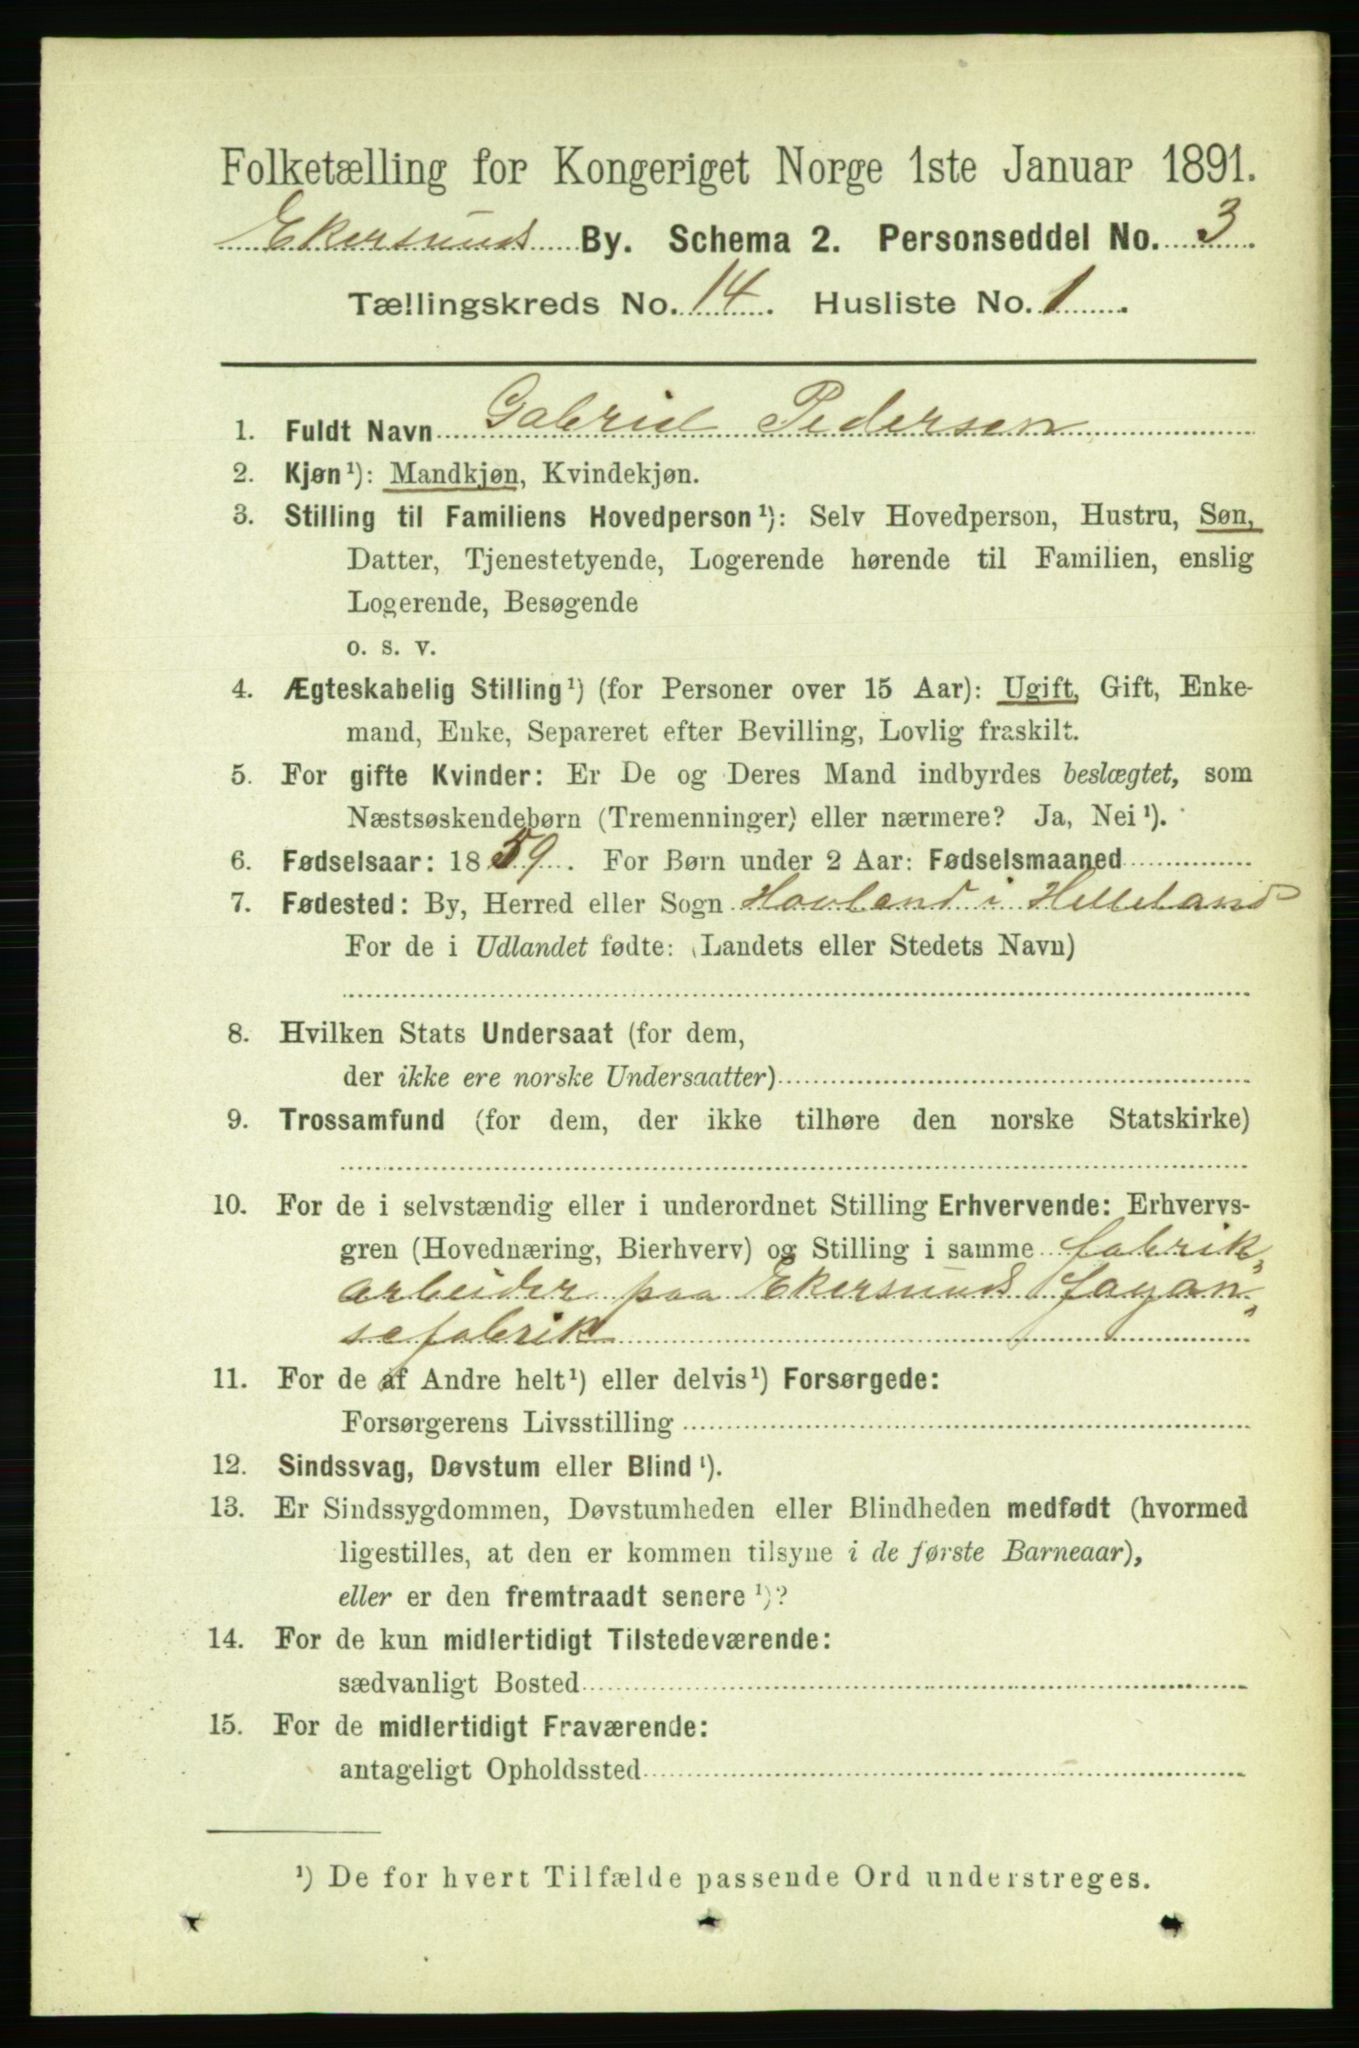 Folketælling for Kongeriget Norge 1ste Januar 1891.
Ekersunds By. Schema 2. Personseddel No. 3.
Tællingskreds No. 14. Husliste No. 1.
1. Fuldt Navn Gabriel Pedersen
2. Kjøn¹): Mandkjøn, Kvindekjøn.
3. Stilling til Familiens Hovedperson¹): Selv Hovedperson, Hustru, Søn,
Datter, Tjenestetyende, Logerende hørende til Familien, enslig
Logerende, Besøgende
o. s. v.
4. Ægteskabelig Stilling¹) (for Personer over 15 Aar): Ugift, Gift, Enke-
mand, Enke, Separeret efter Bevilling, Lovlig fraskilt.
5. For gifte Kvinder: Er De og Deres Mand indbyrdes beslægtet, som
Næstsøskendebørn (Tremenninger) eller nærmere? Ja, Nei¹).
6. Fødselsaar: 1859. For Børn under 2 Aar: Fødselsmaaned
7. Fødested: By, Herred eller Sogn Hovland i Helleland
For de i Udlandet fødte: (Landets eller Stedets Navn)
8. Hvilken Stats Undersaat (for dem,
der ikke ere norske Undersaatter)
9. Trossamfund (for dem, der ikke tilhøre den norske Statskirke)
10. For de i selvstændig eller i underordnet Stilling Erhvervende: Erhvervs-
gren (Hovednæring, Bierhverv) og Stilling i samme fabrik-
arbeider paa Ekersunds fayan-
sefabrik
11. For de af Andre helt¹) eller delvis¹) Forsørgede:
Forsørgerens Livsstilling
12. Sindssvag, Døvstum eller Blind¹).
13. Er Sindssygdommen, Døvstumheden eller Blindheden medfødt (hvormed
ligestilles, at den er kommen tilsyne i de første Barneaar),
eller er den fremtraadt senere¹)?
14. For de kun midlertidigt Tilstedeværende:
sædvanligt Bosted
15. For de midlertidigt Fraværende:
antageligt Opholdssted
¹) De for hvert Tilfælde passende Ord understreges.